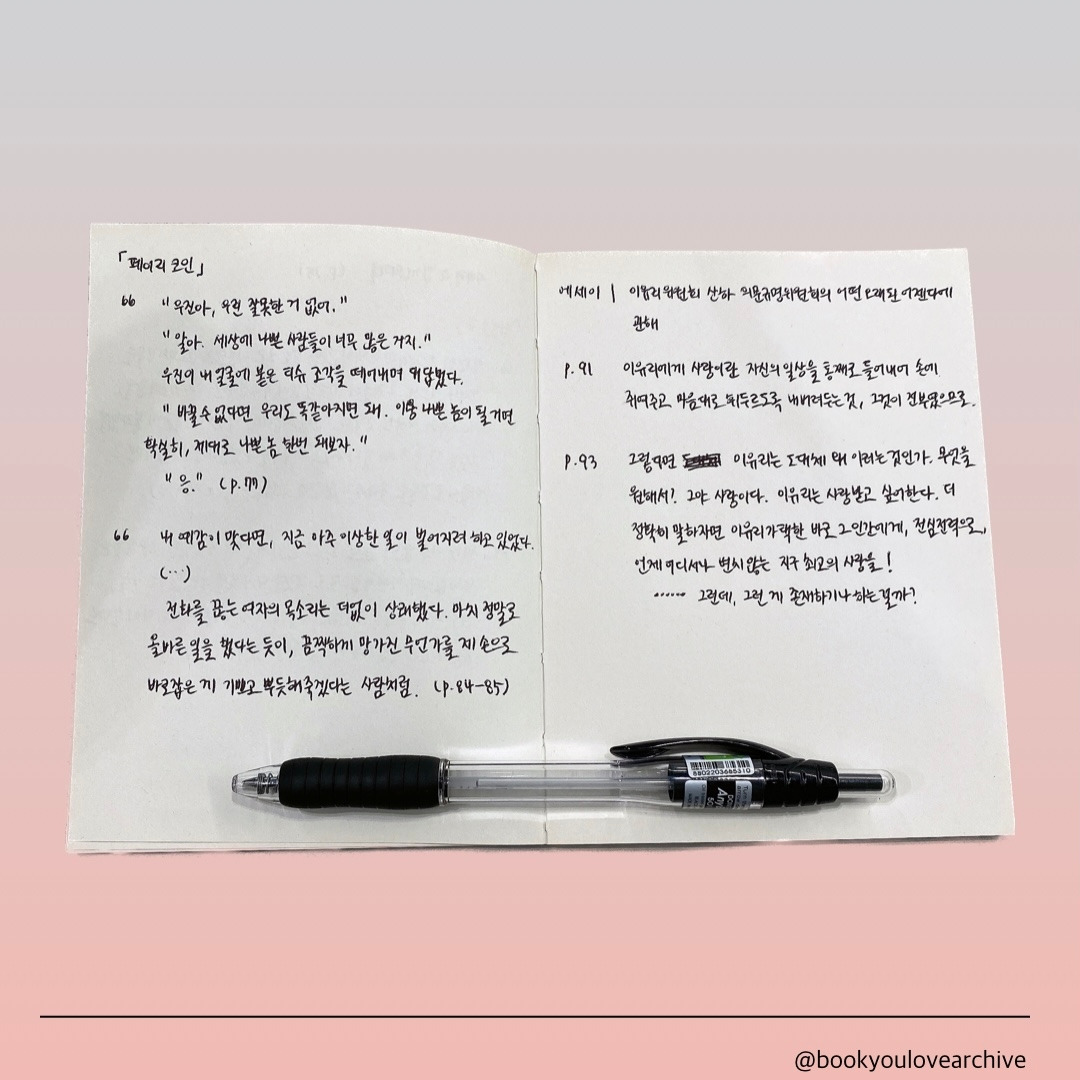 「페어리 코인」
66 "우진아, 우린 잘못한 거 없어."
"알아. 세상에 나쁜 사람들이 너무 많은 거지."
우진이 내 얼굴에 붙은 티슈 조각을 떼어내며 대답했다.
"바꿀 수 없다면 우리도 똑같아지면 돼. 이왕 나쁜 놈이 될 거면
확실히, 제대로 나쁜 놈 한번 돼보자."
"응." (p.77)
66 내 예감이 맞다면, 지금 아주 이상한 일이 벌어지려 하고 있었다.
(…)
전화를 끊는 여자의 목소리는 더없이 상쾌했다. 마치 정말로
올바른 일을 했다는 듯이, 끔찍하게 망가진 무언가를 제 손으로
바로잡은 게 기쁘고 뿌듯해죽겠다는 사람처럼. (p.84-85)
에세이 | 이유리위원회 산하 의문규명위원회의 어떤 오래된 어젠다에
관해
p.91 이유리에게 사랑이란 자신의 일상을 통째로 들어내어 손에
쥐여주고 마음대로 휘두르도록 내버려두는 것, 그것이 전부였으므로.
p.93 그렇다면 이유리는 도대체 왜 이러는 것인가. 무엇을
원해서? 그야 사랑이다. 이유리는 사랑받고 싶어한다. 더
정확히 말하자면 이유리가 택한 바로 그 인간에게, 전심전력으로,
언제 어디서나 변치 않는 지구 최고의 사랑을!
…… 그런데, 그런 게 존재하기나 하는 걸까?
8802203685310
@bookyoulovearchive